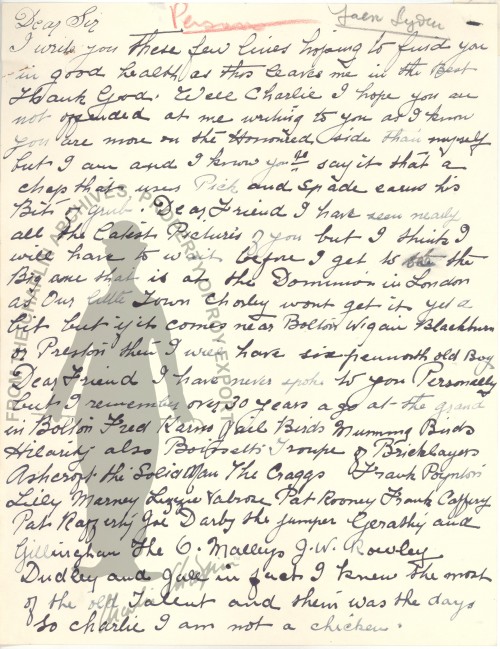 Dear Sir
Person
I write you these few lines hoping to find you
in good health, as this leaves me in the Best
Thank God. Well Charlie I hope you are
not offended at me writing to you as I know
you are more on the Honoured side than myself
but I am and I know you'll say it that a
chap that uses Pick and Spade earns his
Bit o Grub. Dear Friend I have seen nearly
all the Latest Pictures of you but I think I
will have to wait before I get to see the
Big one that is at the Dominion in London
as Our little Town Chorley wont get it yet a
bit but if it comes near Bolton Wigan Blackburn
or Preston then I will have sixpennorth old Boy
Dear Friend I have never spoke to you Personally
but I remember over 30 years ago at the grand
in Bolton Fred Karno Jail Birds Mumming Birds
Hilarity also Boissetti Troupe of Bricklayers
Ashcroft the Solid Man The Craggs Frank Boynton
Lilly Marney Lizzie Valrose Pat Rooney Frank Caffery
Pat Rafferty Joe Darby the jumper Geraghty and
Gillinghan The O. Malleys J.W. Rowley
Dudley and in fact I knew the most
of the old Talent and them was the days
So Charlie I am not a chicken.
FROM THE CHAPLIN ARCHIVES, PROPERTY OF ROY EXPORT